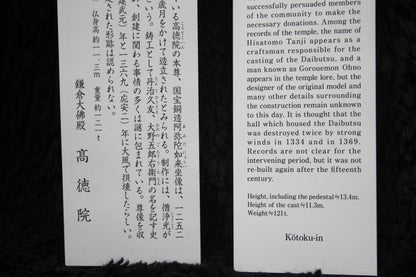 いる高徳院の本尊、国宝銅造阿弥陀如来坐像は、一二五二
歳月をかけて造立されたとみられる。制作には、僧浄光が
いう。鋳工として丹治久友、大野五郎右衛門の名を記す史
め、創建に関わる事情の多くは謎に包まれている。尊像を収
建武元）年と一三六九（応安二）年に大風で損壊したらしい。
された形跡は認められない。
仏身高 約一一.三m 重量 約一二一t
鎌倉大佛殿
高德院
successfully persuaded members
of the community to make the
necessary donations. Among the
records of the temple, the name of
Hisatomo Tanji appears as a
craftsman responsible for the
casting of the Daibutsu, and a
man known as Gorouemon Ohno
appears in the temple lore, but the
designer of the original model and
many other details surrounding
the construction remain unknown
to this day. It is thought that the
hall which housed the Daibutsu
was destroyed twice by strong
winds in 1334 and in 1369.
Records are not clear for the
intervening period, but it was not
re-built again after the fifteenth
century.
Height, including the pedestal≒13.4m.
Height of the cast≒11.3m.
Weight≒121t.
Kōtoku-in